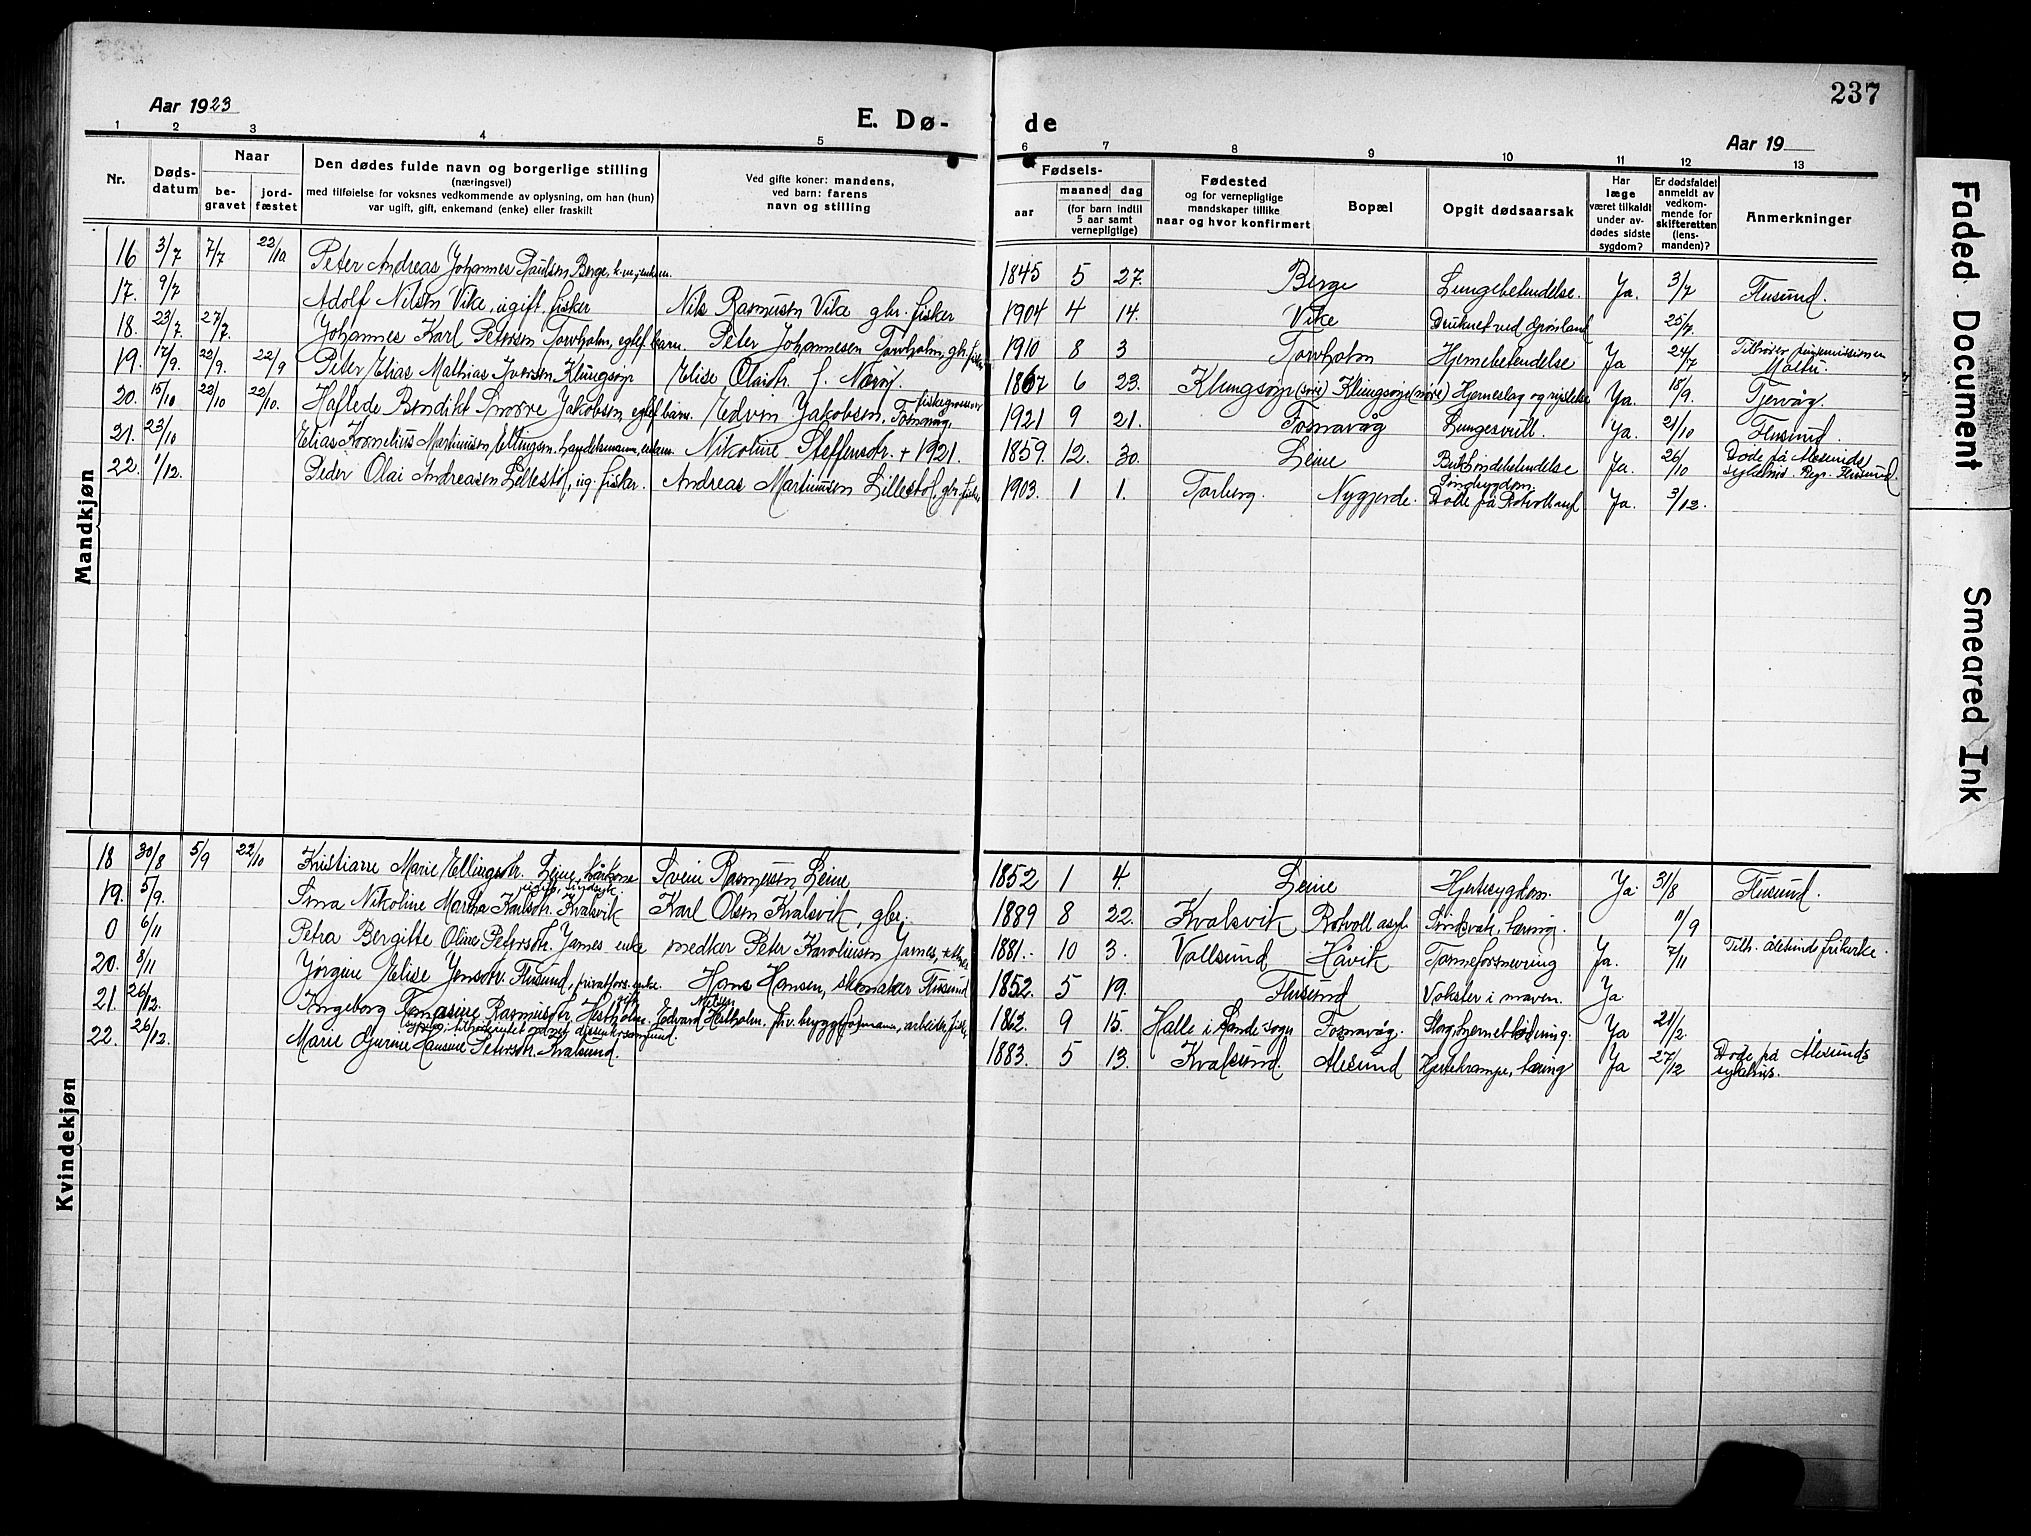 237
Aar 1923
E. Dø-
de
Aar 19
1 2 3 4 5 6 7 8 9 10 11 12 13
Nr.
Døds-
datum
Naar
be-
gravet
jord-
fæstet
Den dødes fulde navn og borgerlige stilling
(næringsvei)
med tilføielse for voksnes vedkommende av oplysning, om han (hun)
var ugift, gift, enkemand (enke) eller fraskilt
Ved gifte koner: mandens,
ved barn: farens
navn og stilling
Fødsels-
aar
maaned
dag
(for barn indtil
5 aar samt
vernepligtige)
Fødested
og for vernepligtige
mandskaper tillike
naar og hvor konfirmert
Bopæl
Opgit dødsaarsak
Har
læge
været tilkaldt
under av-
dødes sidste
sygdom?
Er dødsfaldet
anmeldt av
vedkom-
mende for
skifteretten
(lens-
manden)?
Anmerkninger
Mandkjøn
16 3/7 7/7 22/10 Peter Andreas Johannes Paulsen Berge, 1845 5 27. Berge Lungebetendelse. Ja. 3/7 Flusund.
17. 9/7 Adolf Nilsen Vike, ugift, fisker Nils Rasmusen Vike gbr. fisker 1904 4 14. Vike Druknet ved Grønland 25/7
18. 23/7 27/7. Johannes Karl Petersen Torvholm, egtef. barn. Peter Johannesen Torvholm, gbr. fisker 1910 8 3 Torvholm Hjernebetendelse Ja 24/7 Tilhører Moltu.
19. 17/9. 22/9. 22/9 Peter Elias Mathias Iversen Klungsøyr Elise Olaidtr. f. Nærøy. 1867 6 23. Klungsøyr (søre) Klungsøyr (nore) Hjerneslag og Ya. 18/9. Tjervåg.
20. 15/10 22/10 22/10. Haflede Bendikt Snorre Jakobsen, egtef. barn. Edvin Jakobsen, Fosnavåg, 1921 9 21. Fosnavåg Lungesvull. Ja. 21/10 Flusund.
21. 23/10 Elias Kornelius Martinusen Ellingsen, handelsmann, Nikoline Steffensdtr. + 1921. 1859. 12. 30. Leine Bukhindebetendelse Ja. 26/10 Døde på Ålesunds
22. 1/12. Peder Olai Andreasen Lillestøl, ug. fisker. Andreas Martinusen Lillestøl, gbr. fisker 1903. 1 1. Torberg. Nygjerde. Døde på Rotvoll asyl Ja. 3/12.
Kvindekjøn
18 30/8 5/9 22/10 Kristianne Marie Ellingsdtr. Leine, Svein Rasmusen Leine 1852 1 4. Leine Hjertesygdom. Ja 31/8 Flusund.
19. 5/9. Sina Nikoline Martha Karlsdtr. Kvalsvik Karl Olsen Kvalsvik, gbr. 1889 8 22. Kvalsvik Rotvoll asyl. Sindsvak, tæring. 11/9
0 6/11 Petra Bergitte Oline Petersdtr. Jarnes enke snedker Peter Karolinsen Jarnes, 1881. 10 3. Vollsund Håvik Ja. 7/11 Tilh. Ålesunds frikirke.
20. 8/11 Jørgine Elise Jensdtr. Flusund, enke. Hans Hansen, skomaker Flusund 1852. 5 19. Flusund Vokster i maven. Ja
21. 26/12. Ingeborg Tomasine Rasmusdtr. Hestholm. Edvard Nilsen Hestholm, 1862. 9 15. Halle i Sande sogn Fosnavåg. Slag, hjerneblødning. Ja 21/2
22. 26/12. Marie Gurine Hansine Petersdtr. Kvalsund. 1883. 5 13. Kvalsund. Ålesund Hjertekrampe, tæring Ja 27/12 Døde på Ålesunds sykehus.
Faded Document
Smeared Ink